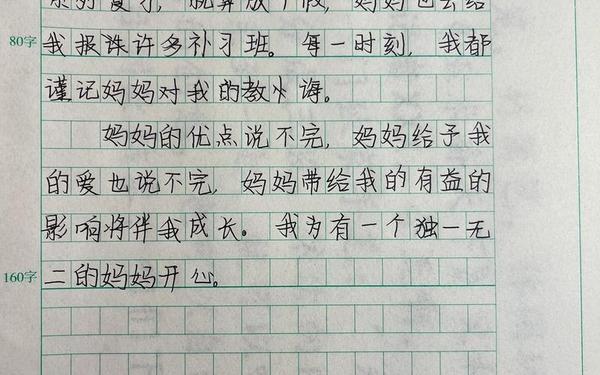 系列复习，就算放个假，妈妈也会给
80字 我报诛许多补习班。每一时刻，我都
谨记妈妈对我的教火诲。
妈妈的优点说不完，妈妈给予我
的爱也说不完，妈妈带给我的有益的
影响将伴我成长。我为有一个独一无
160字 二的妈妈开心。